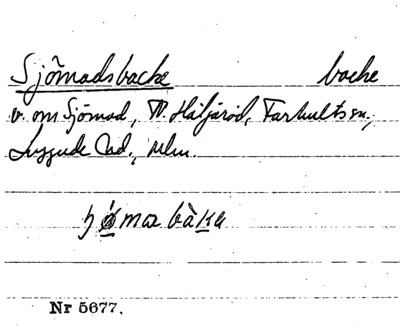 Sjömadsbacke backe
v. om Sjömad, N. Häljaröd, Farhults sn,
Luggude hd., Mlm.
Nr 5677.